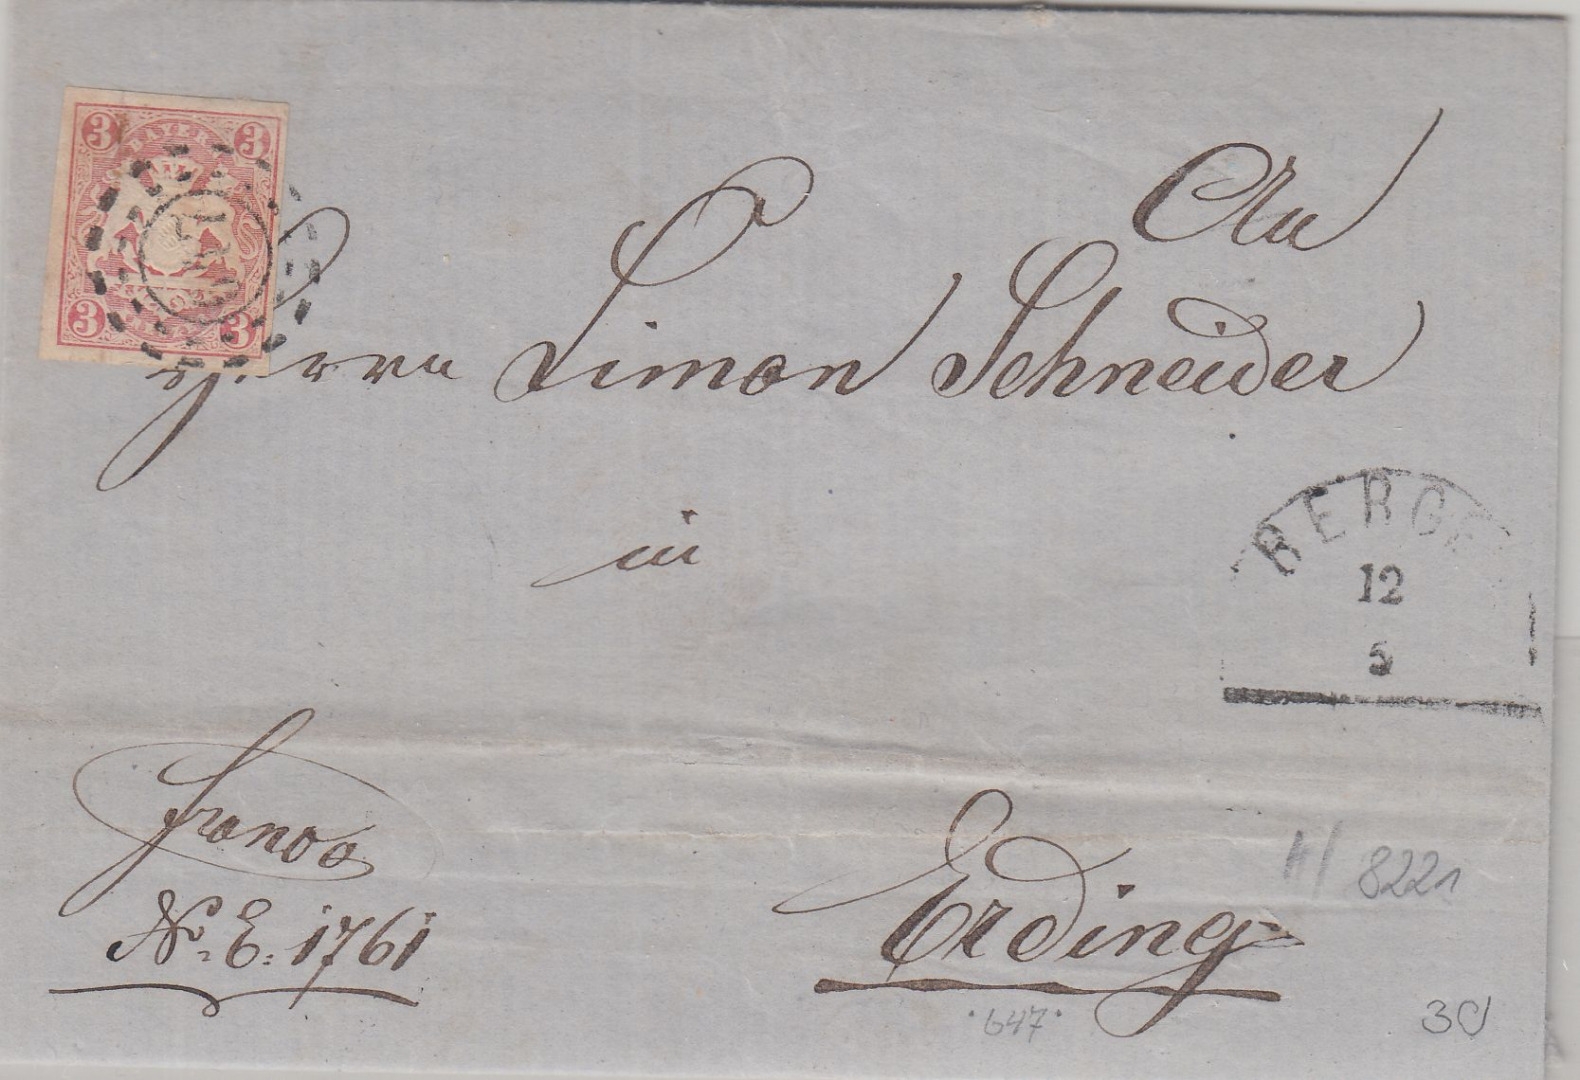 3 BAYERN 3
3 3
An
Herrn Simon Schneider
in
BERGE
12
5
franco
No. E. 1761
Erding
8221
647
30